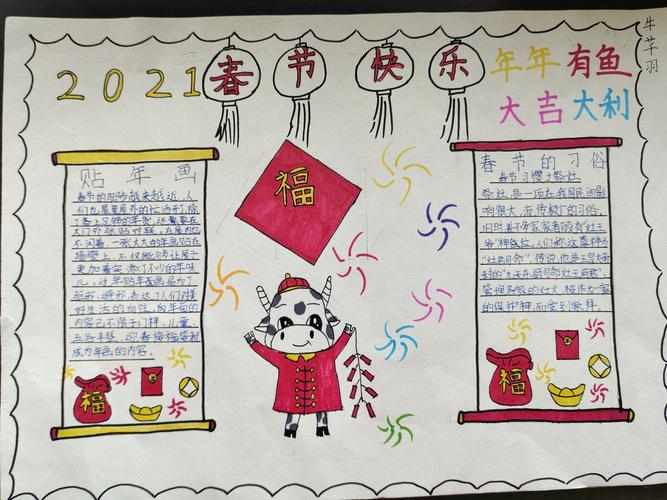 2021
春节快乐
年年有鱼
大吉大利
牛芊羽
贴年画
春节的脚步越来越近,人
们也屋里屋外的忙活开了,除
了备上足够的年货,还要在
大门外张贴对联,在屋内也
不闲着,一张大大的年画贴在
墙壁上,不仅能够让屋子
更加着实添了不少的年味
儿,对年贴年画是为了
好生活的向往,的年画的
内容已不限于门神,儿童、
五谷丰登、迎春接福等都
成为年画的内容。
福
福
春节的习俗
春节习惯之祭灶
祭灶,是一项在我国民间影
响很大、流传极广的习俗。
旧时,差不多家家都设有"灶王
爷"神位,人们称这尊神为
"灶司命",传说他是玉皇大帝
封的"九天东厨司命灶王府君",
管理各家的灶火,被作为一家
的保护神而受到崇拜。
福